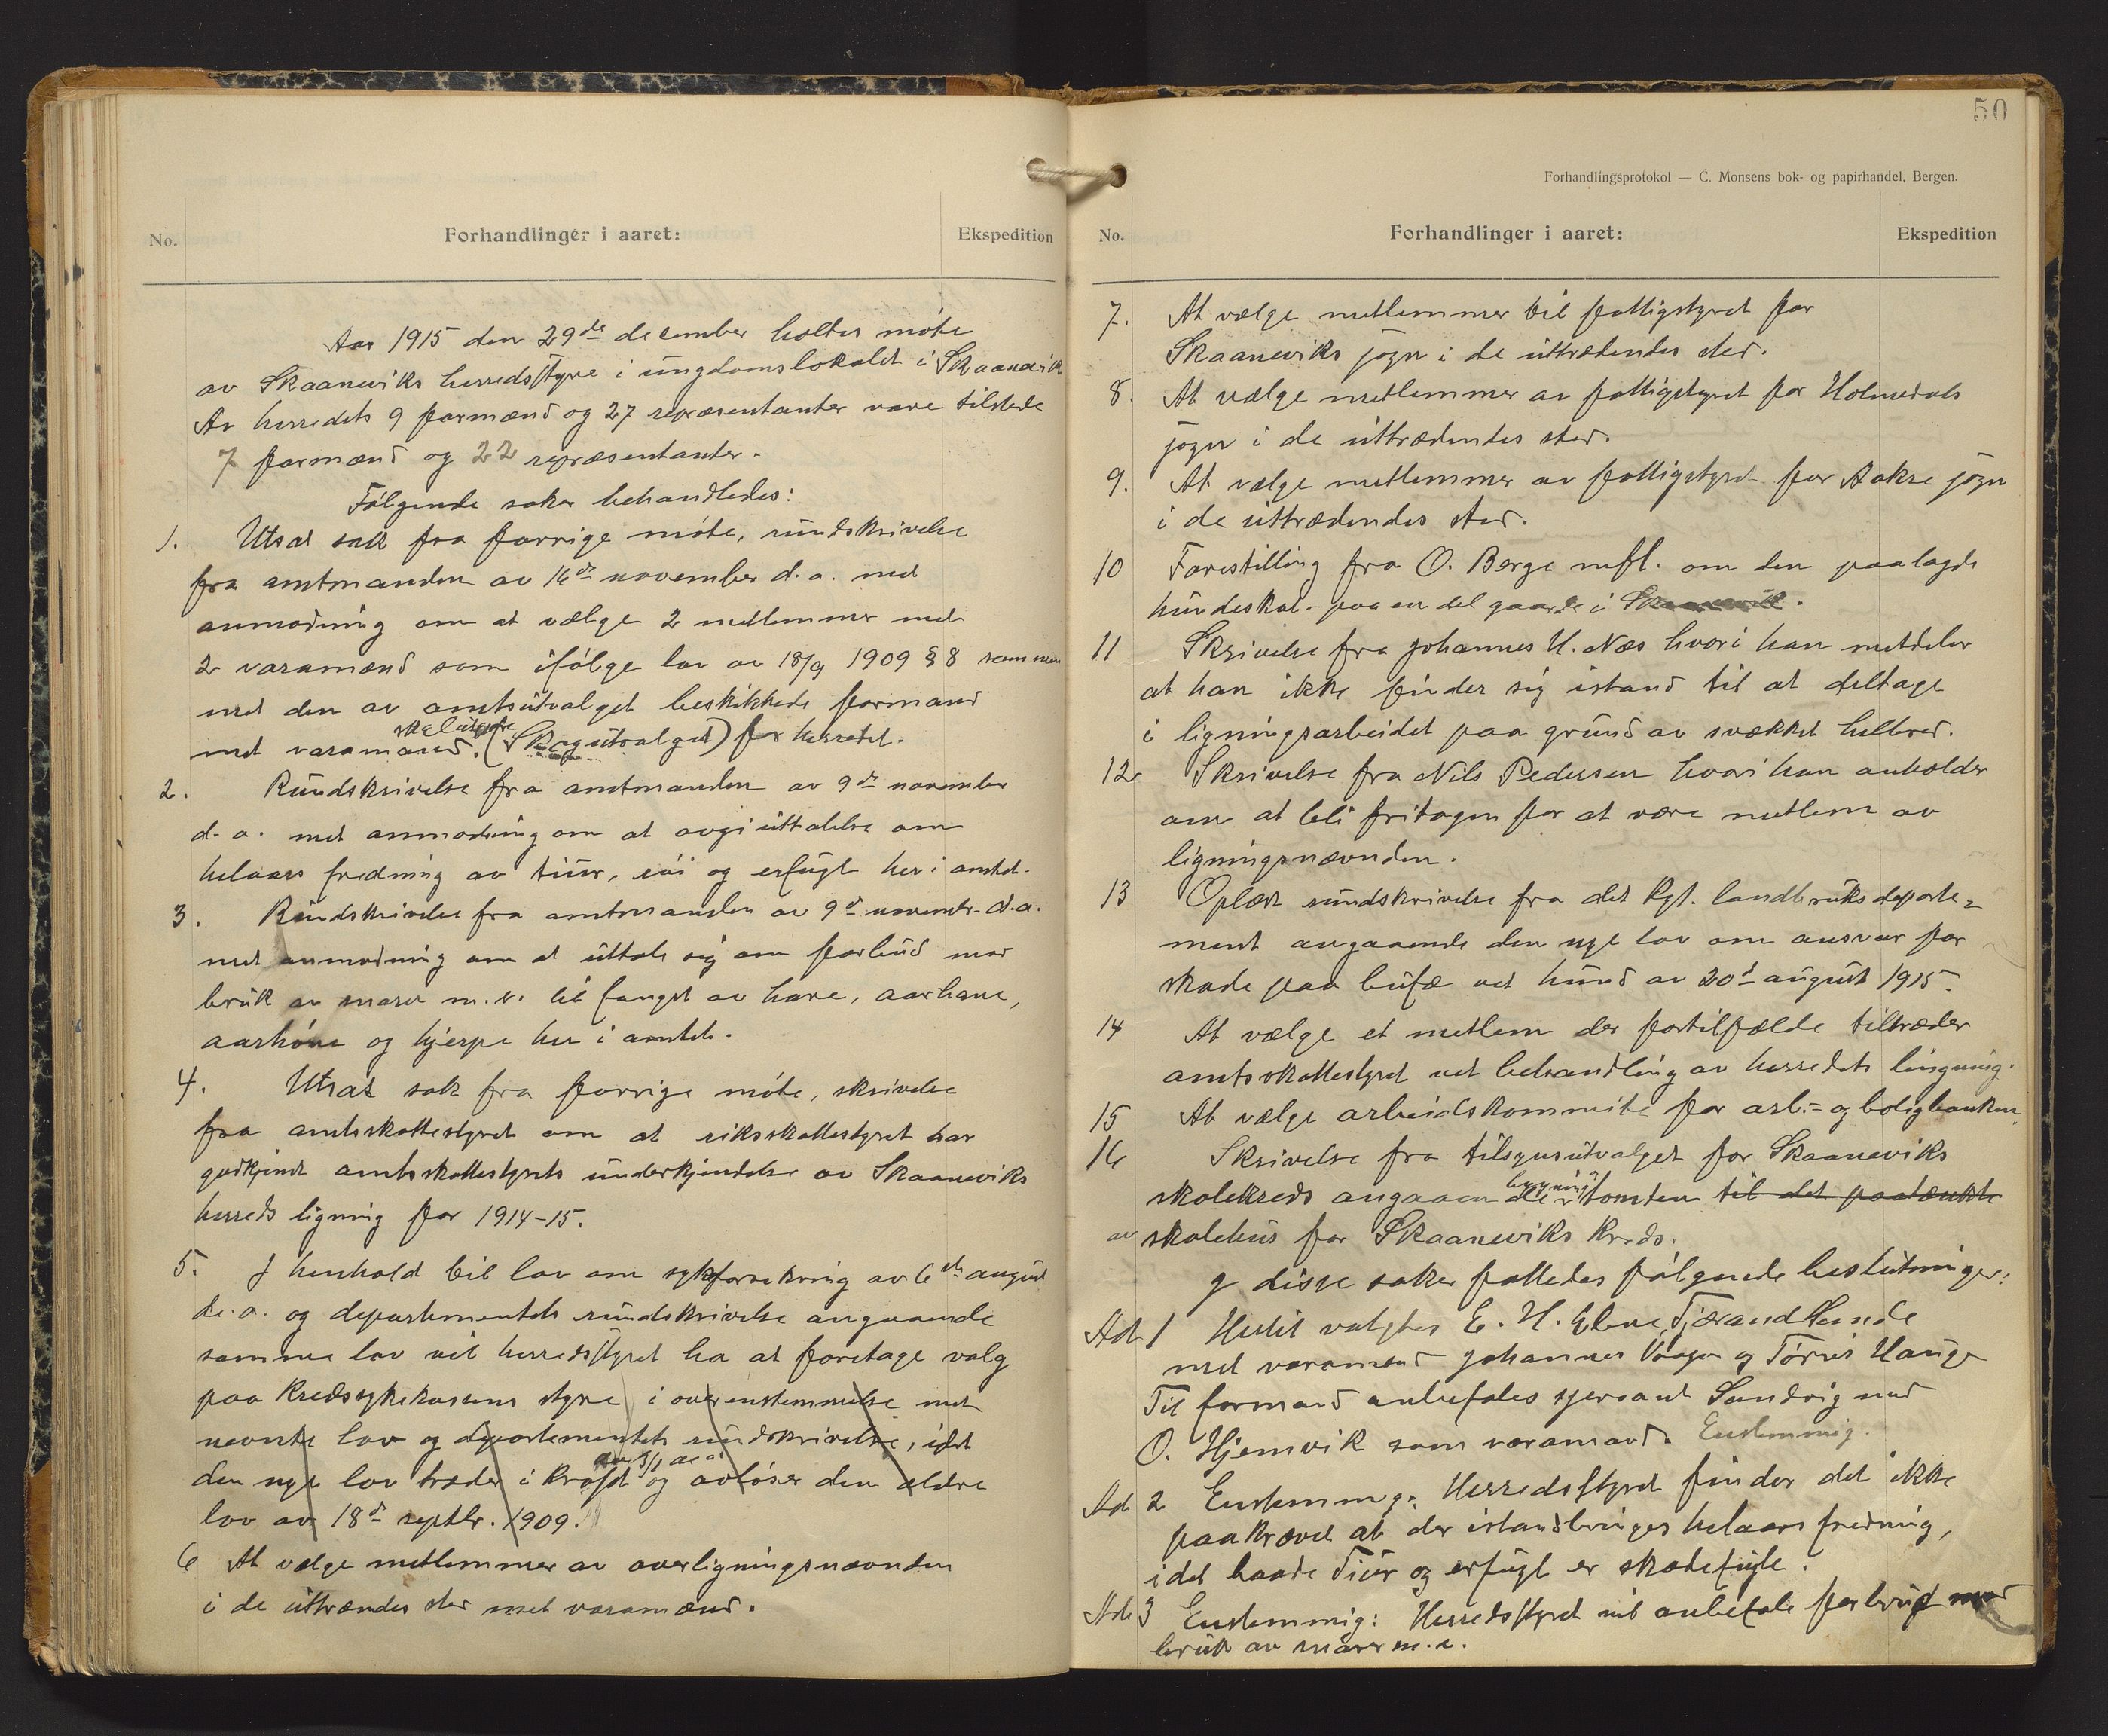 No.
Forhandlinger i aaret:
Ekspedition
Aar 1915 den 29de december holdtes møte
av Skaaneviks herredsstyre i ungdomslokalet i Skaanevik
Av herredets 9 formænd og 27 repræsentanter vare tilstede
7 formænd og 22 repræsentanter.
Følgende saker behandledes:
1. Utsat sak fra forrige møte, rundskrivelse
fra amtmanden av 16de november d.a. med
anmodning om at vælge 2 medlemmer med
2 varamænd som ifølge lov av 18/9 1909 § 8 sammen
med den av amtsutvalget beskikkede formand
med varamand. (Skogutvalget) for herredet.
2. Rundskrivelse fra amtmanden av 9de november
d.a. med anmodning om at avgi uttalelse om
helaars fredning av tiur, røi og orfugl her i amtet.
3. Rundskrivelse fra amtmanden av 9de novembr. d.a.
med anmodning om at uttale sig om forbud mot
bruk av snarer m.v. til fangst av hare, aarhane,
aarhøne og hjerpe her i amtet.
4. Utsat sak fra forrige møte, skrivelse
fra amtsskattestyret om at riksskattestyret har
godkjendt amtsskattestyrets underkjendelse av Skaaneviks
herreds ligning for 1914-15.
5. I henhold til lov om sykeforsikring av 6te august
d.a. og departementets rundskrivelse angaaende
samme lov vil herredsstyret ha at foretage valg
paa kredssykekassens styre i overenstemmelse med
nevnte lov og departementets rundskrivelse, idet
den nye lov træder i kraft og avløser den ældre
lov av 18de septbr. 1909.
6 At vælge medlemmer av overligningsnævnden
i de uttrændes sted med varamænd.
50
Forhandlingsprotokol — C. Monsens bok- og papirhandel, Bergen.
No.
Forhandlinger i aaret:
Ekspedition
7. At vælge medlemmer til fattigstyret for
Skaaneviks sogn i de uttrædendes sted.
8. At vælge medlemmer av fattigstyret for Holmedals
sogn i de uttrædendes sted.
9. At vælge medlemmer av fattigstyret for Aakre sogn
i de uttrædendes sted.
10 Forestilling fra O. Berge mfl. om den paalagde
hundeskat paa en del gaarde i Skaanevik.
11 Skrivelse fra Johannes H. Næs hvori han meddeler
at han ikke finder sig istand til at deltage
i ligningsarbeidet paa grund av svækket helbred.
12 Skrivelse fra Nils Pedersen hvori han anholder
om at bli fritagen for at være medlem av
ligningsnævnden.
13 Oplæst rundskrivelse fra det kgl. landbruksdeparte=
ment angaaende den nye lov om ansvar for
skade paa bufæ ved hund av 20d august 1915.
14 At vælge et medlem der fortilfælde tiltræder
amtsskattestyret ved behandling av herredets lingning.
15 At vælge arbeidskommite for arb.- og boligbanken.
16 Skrivelse fra tilsynsutvalget for Skaaneviks
skolekreds angaaende tomten til det paatænkte
av skolehus for Skaaneviks kreds.
I disse saker fattedes følgende beslutninger:
Ad 1 Hertil valgtes E. H. Ebne, Tjærand Hende
med varamænd Johannes Vaage og Tørres Hauge
Til formand anbefales sersant Sandvig med
O. Hjemvik som varamand. Enstemmig.
Ad 2 Enstemmig. Herredsstyret finder det ikke
paakrævet at der istandbringes helaars fredning,
idet baade Tiur og orfugl er skadefugle.
Ad 3 Enstemmig: Herredsstyret vil anbefale forbud mot
bruk av snarer m.v.